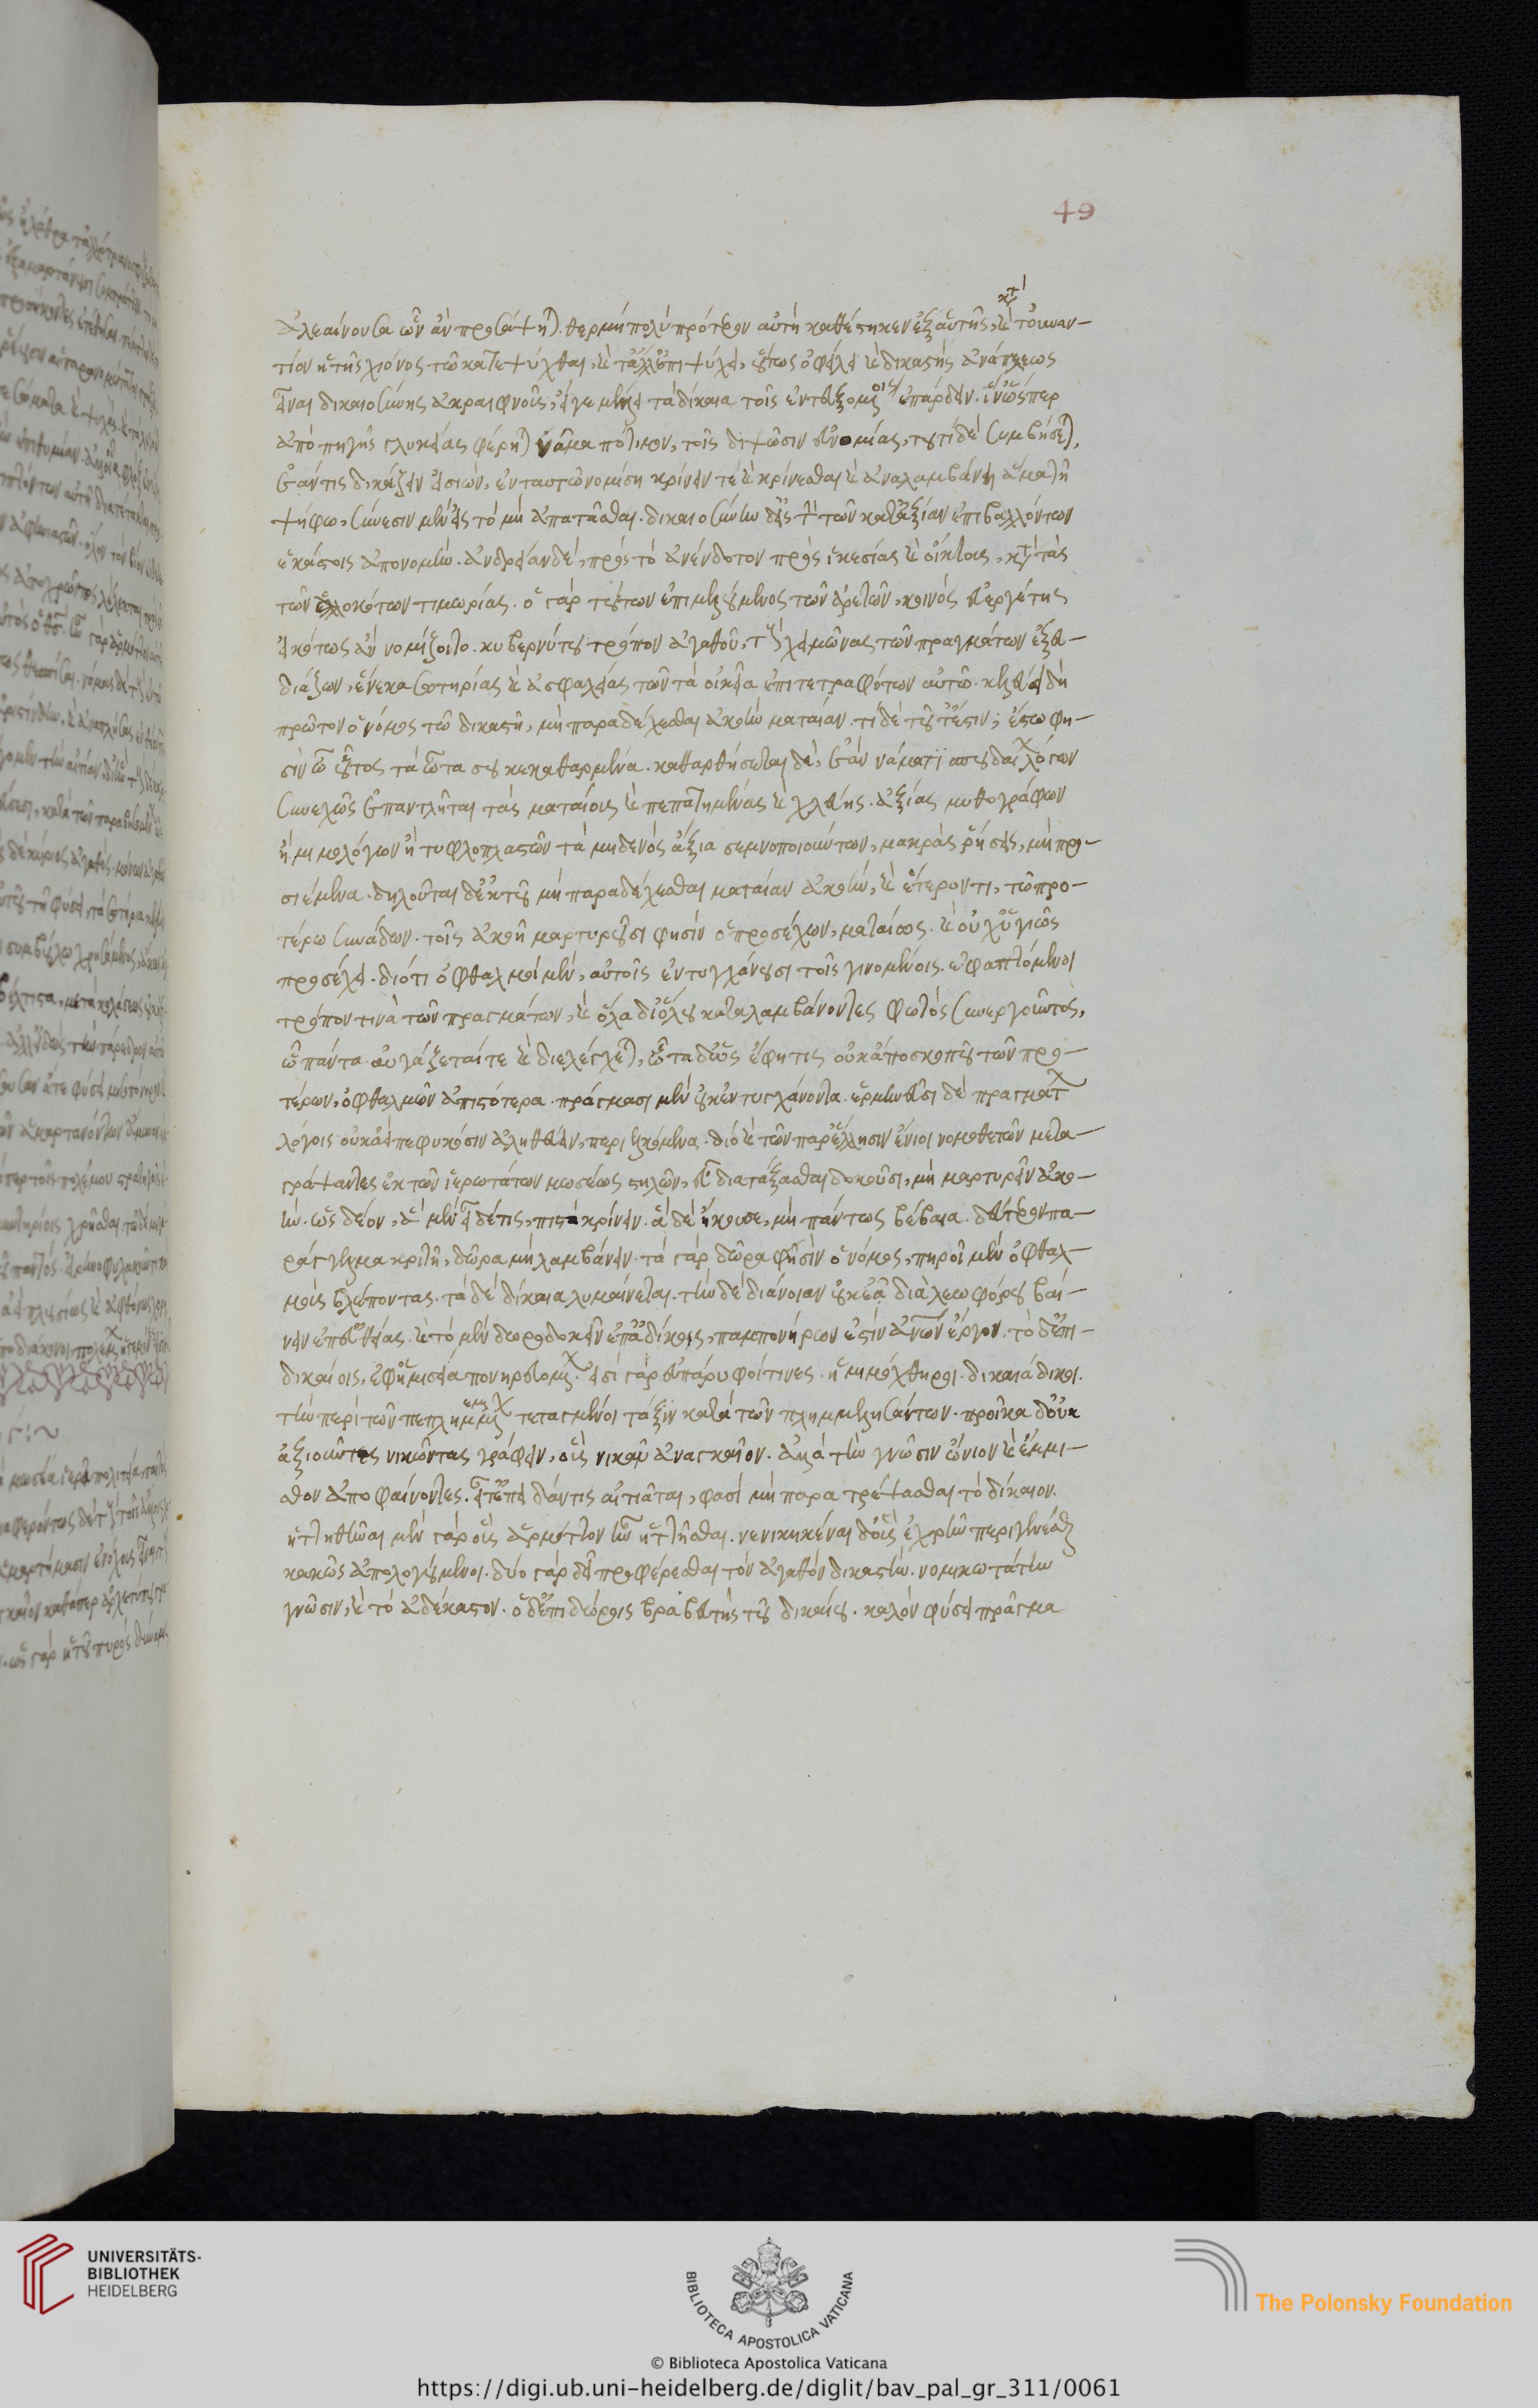 49
ἀλεαίνουσα ὧν ἂν προσάψηται. θερμὴ πολὺ πρότερον αὐτὴ καθέστηκεν ἐξ ἑαυτῆς, καὶ κατὰ τοὐναν-
τίον ἡ τῆς χιόνος τῶ κατεψύχθαι, καὶ τἄλλ' ἐπιψύχει, οὕτως ὀφείλει καὶ δικαστὴς ἀνάπλεως
εἶναι δικαιοσύνης ἀκραιφνοῦς, εἴγε μέλλει τὰ δίκαια τοῖς ἐντευξομένοις ἐπάρδειν. ἵν' ὥσπερ
ἀπὸ πηγῆς γλυκείας φέρηται νᾶμα πότιμον, τοῖς διψῶσιν εὐνομίας, τουτὶ δὲ συμβήσεται,
ἐάν τις δικάζειν εἰσιὼν, ἐν ταυτῶ νομίση κρίνειν τὲ καὶ κρίνεσθαι καὶ ἀναλαμβάνη ἅμα τῆ
ψήφω, σύνεσιν μὲν εἰς τὸ μὴ ἀπατᾶσθαι. δικαιοσύνην δ' εἰς τὴν τῶν κατ' ἀξίαν ἐπιβαλλόντων
ἑκάστοις ἀπονομὴν. ἀνδρείαν δὲ, πρὸς τὸ ἀνένδοτον πρὸς ἱκεσίας καὶ οἴκτους, κατὰ τὰς
τῶν ἑαλωκότων τιμωρίας. ὁ γὰρ τούτων ἐπιμελούμενος τῶν ἀρετῶν, κοινὸς εὐεργέτης
εἰκότως ἂν νομίζοιτο. κυβερνήτου τρόπον ἀγαθοῦ, τοὺς χειμῶνας τῶν πραγμάτων ἐξευ-
διάζων, ἕνεκα σωτηρίας καὶ ἀσφαλείας τῶν τὰ οἰκεῖα ἐπιτετραφότων αὐτῶ. κελεύει δὴ
πρῶτον ὁ νόμος τῶ δικαστῆ, μὴ παραδέχεσθαι ἀκοὴν ματαίαν. τί δὲ τοῦτ' ἔστιν; ἔστω φη-
σὶν ὦ οὗτος τὰ ὦτα σου κεκαθαρμένα. καθαρθήσεται δὲ, ἐὰν νάμασι σπουδαίων λόγων
συνεχῶς ἐπαντλῆται τὰς ματαίους καὶ πεπατημένας καὶ χλεύης ἀξίας μυθογράφων
ἢ μιμολόγων ἢ τυφλοπλαστῶν τὰ μηδενὸς ἄξια σεμνοποιούντων, μακρὰς ῥήσεις, μὴ προ-
σιέμενα. δηλοῦται δ' ἐκ τοῦ μὴ παραδέχεσθαι ματαίαν ἀκοὴν, καὶ ἕτερόν τι, τῶ προ-
τέρω συνάδων. τοῖς ἀκοῆ μαρτυροῦσι φησὶν ὁ προσέχων, ματαίως. καὶ οὐχ ὑγιῶς
προσέχει. διότι ὀφθαλμοὶ μὲν, αὐτοῖς ἐντυγχάνουσι τοῖς γινομένοις. ἐφαπτόμενοι
τρόπον τινὰ τῶν πραγμάτων, καὶ ὅλα δι' ὅλου καταλαμβάνοντες φωτὸς συνεργοῦντος,
ὧ πάντα αὐγάζεταί τε καὶ διελέγχεται, ὦτα δ' ὡς ἔφη τις οὐκ ἀπὸ σκοποῦ τῶν προ-
τέρων, ὀφθαλμῶν ἀπιστότερα. πράγμασι μὲν οὐκ ἐντυγχάνοντα. ἑρμηνεῦσι δὲ πραγμάτων
λόγοις οὐκ ἀεὶ πεφυκόσιν ἀληθεύειν, περιελκόμενα. διὸ καὶ τῶν παρ' ἕλλησιν ἔνιοι νομοθετῶν μετα-
γράψαντες ἐκ τῶν ἱερωτάτων μωσέως στηλῶν, εὖ διατάξασθαι δοκοῦσι, μὴ μαρτυρεῖν ἀκο-
ήν. ὡς δέον, ἃ μὲν εἶδέ τις, πιστὰ κρίνειν. ἃ δὲ ἤκουσε, μὴ πάντως βέβαια. δεύτερον πα-
ράγγελμα κριτῆ, δῶρα μὴ λαμβάνειν. τὰ γὰρ δῶρα φησὶν ὁ νόμος, πηροῖ μὲν ὀφθαλ-
μοὺς βλέποντας. τὰ δὲ δίκαια λυμαίνεται. τὴν δὲ διάνοιαν οὐκ ἐᾶ διὰ λεωφόρου βαί-
νειν ἐπ' εὐθείας. καὶ τὸ μὲν δωροδοκεῖν ἐπ' ἀδίκοις, παμπονήρων ἐστὶν ἀνθρώπων ἔργον. τὸ δ' ἐπι-
δικαίοις, ἐφ' ἡμισεία πονηρευομένων. εἰσὶ γὰρ εὐπάρυφοί τινες. ἡμιμόχθηροι. δικαιάδικοι.
τὴν περὶ τῶν πεπλημμελημένων τεταγμένοι τάξιν κατὰ τῶν πλημμελησάντων. προῖκα δ' οὐκ
ἀξιοῦντες νικῶντας γράφειν, οἷς νικᾶν ἀναγκαῖον. ἀλλὰ τὴν γνῶσιν ὤνιον καὶ ἔμμι-
σθον ἀποφαίνοντες. εἶτ' ἐπειδάν τις αἰτιᾶται, φασὶ μὴ παρατρέψασθαι τὸ δίκαιον.
ἡττηθῆναι μὲν γὰρ οἷς ἁρμόττον ἦν ἡττῆσθαι. νενικηκέναι δ' οἷς ἐχρῆν περιγενέσθαι
κακῶς ἀπολογούμενοι. δύο γὰρ δεῖ προφέρεσθαι τὸν ἀγαθὸν δικαστὴν. νομικωτάτην
γνῶσιν, καὶ τὸ ἀδέκαστον. ὁ δ' ἐπὶ δώροις βραβευτὴς τοῦ δικαίου. καλὸν φύσει πρᾶγμα
UNIVERSITÄTS-
BIBLIOTHEK
HEIDELBERG
BIBLIOTECA APOSTOLICA VATICANA
The Polonsky Foundation
© Biblioteca Apostolica Vaticana
https://digi.ub.uni-heidelberg.de/diglit/bav_pal_gr_311/0061